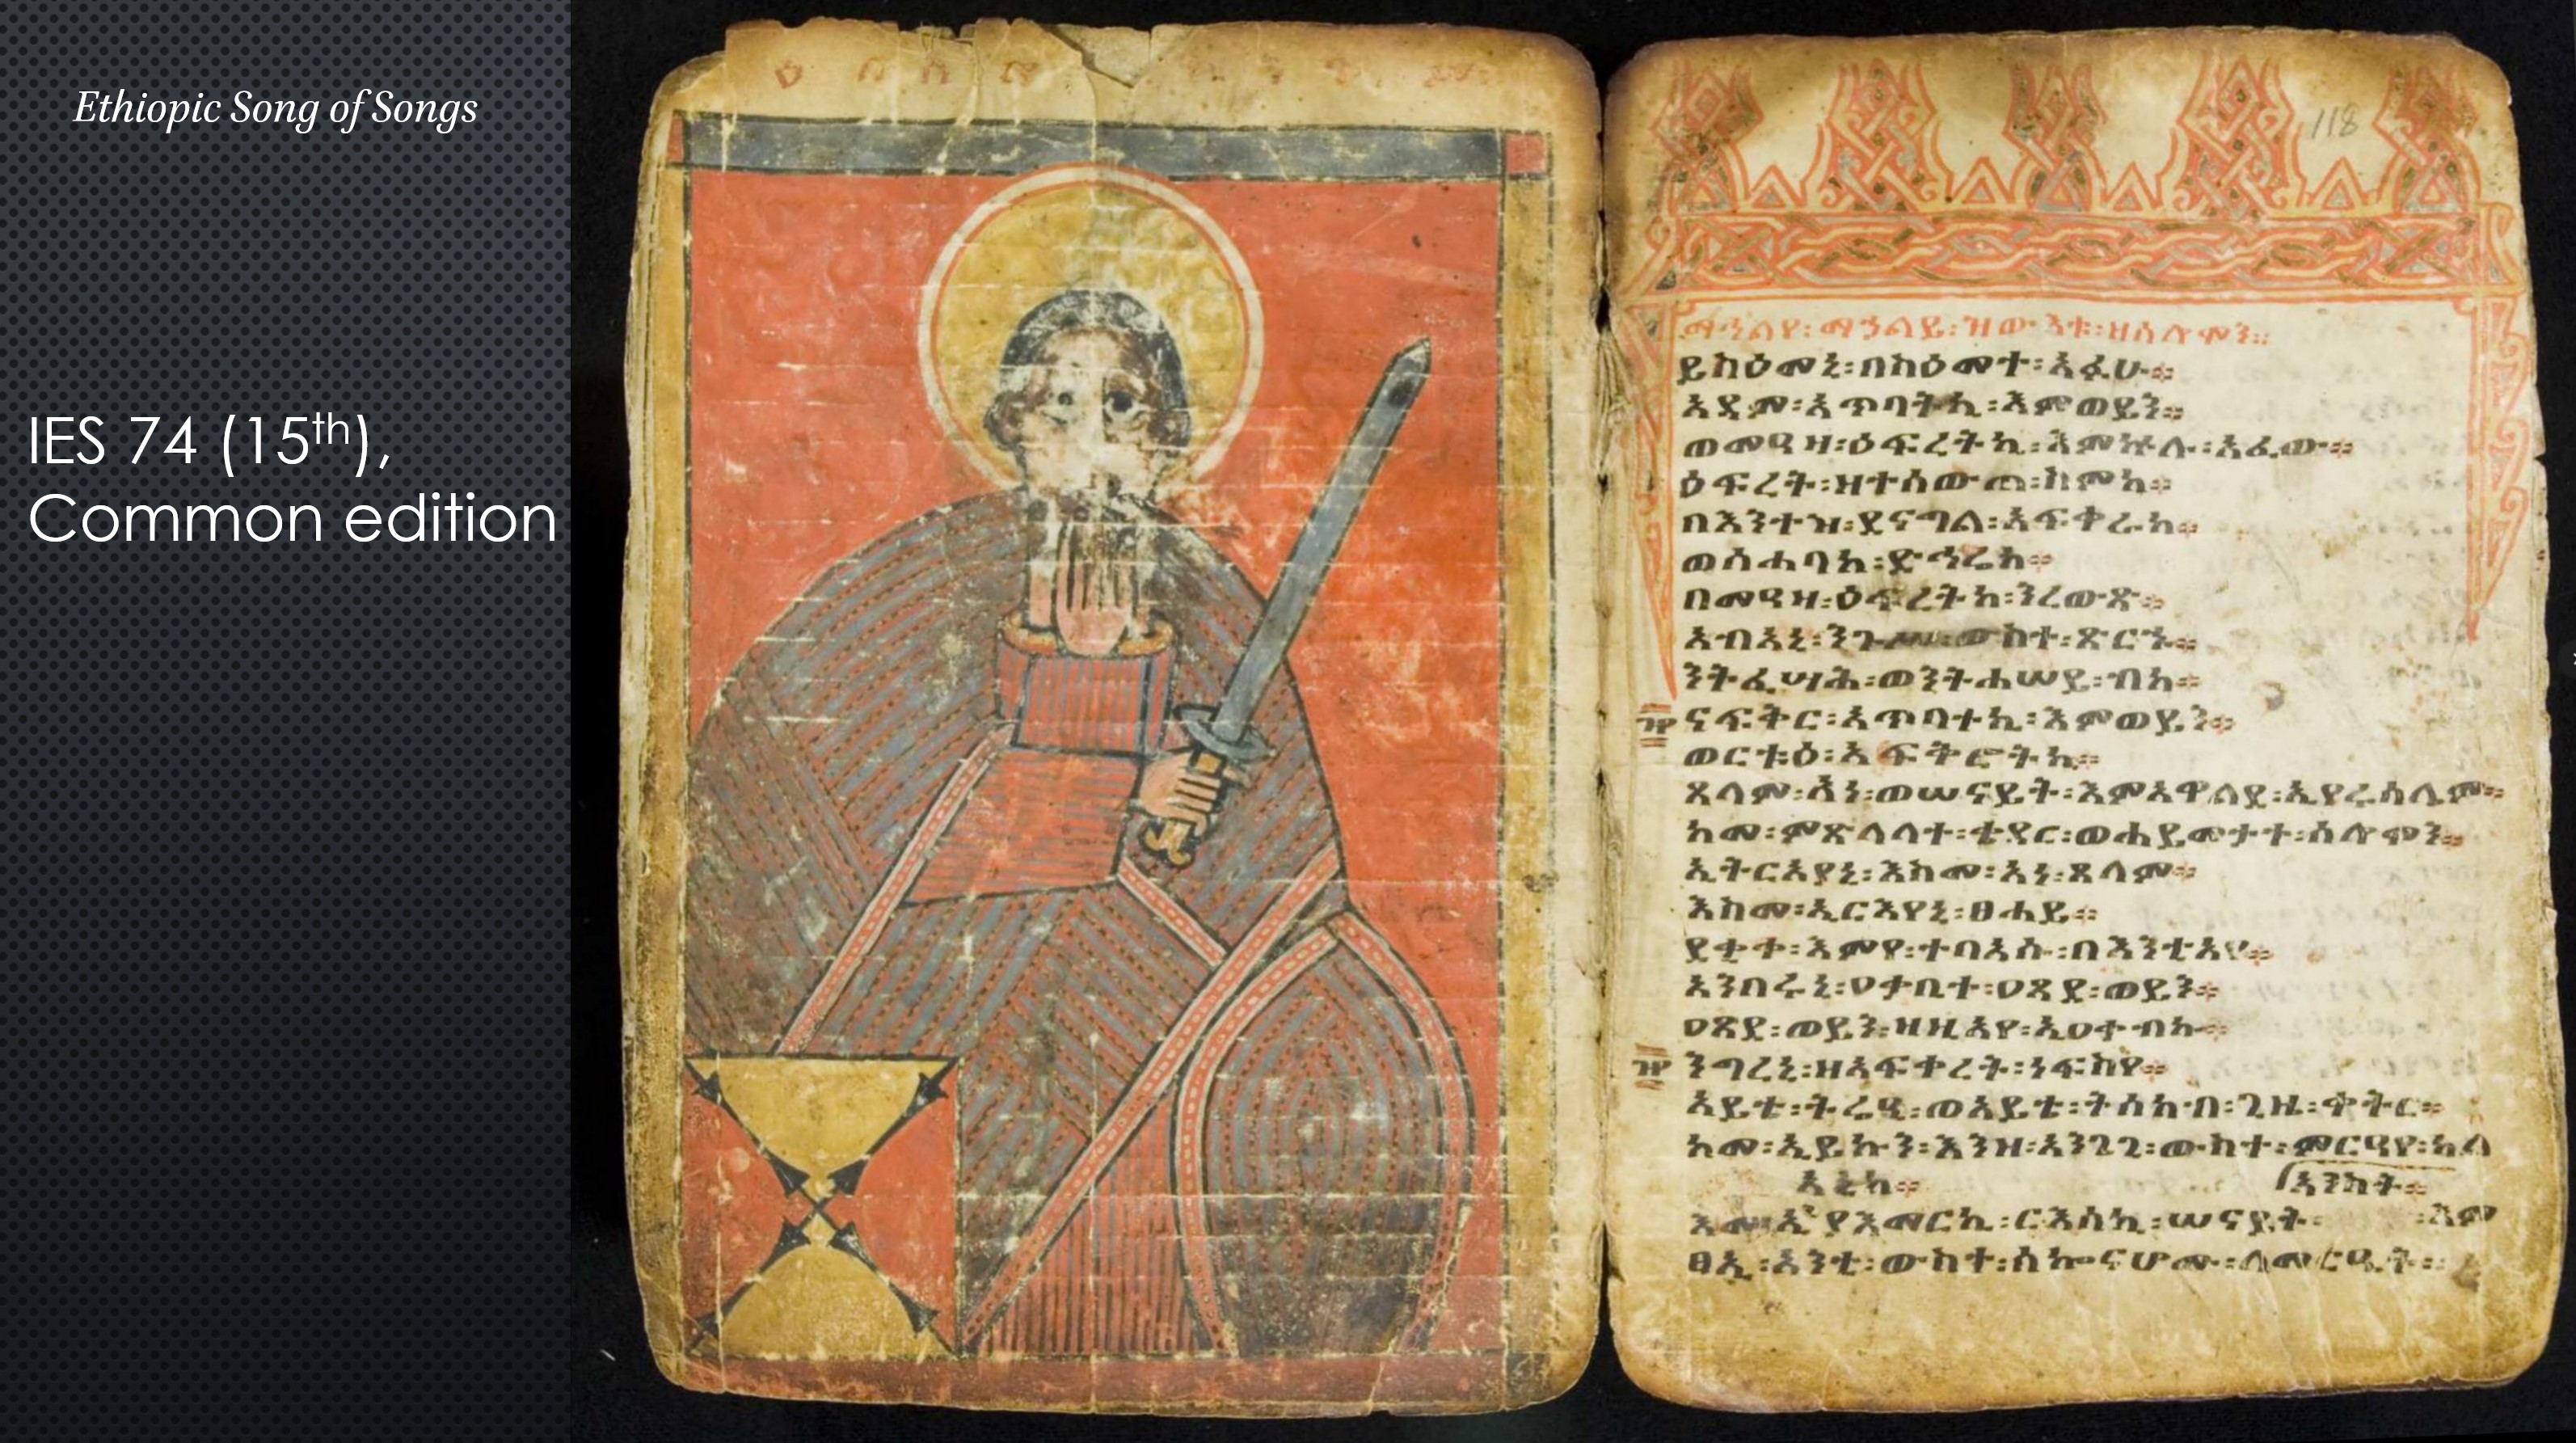 Ethiopic Song of Songs
IES 74 (15th),
Common edition
118
ማኅልየ፡ማኅልይ፡ዝውእቱ፡ዘሰሎሞን።
ይስዕመኒ፡በስዕመተ፡አፉሁ።
አዳም፡አጥባትኪ፡እምወይን።
ወመዓዛ፡ዕፍረትኪ፡እምኵሉ፡አፈው።
ዕፍረት፡ዘተሰውጠ፡ስምከ።
በእንተዝ፡ደናግል፡አፍቀራከ።
ወሰሐባከ፡ድኅሬከ።
በመዓዛ፡ዕፍረትከ፡ንረውጽ።
አብአኒ፡ንጉሠ፡ውስተ፡ጽርሑ።
ንትፈሣሕ፡ወንትሐሠይ፡ብከ።
ናፍቅር፡አጥባተኪ፡እምወይን።
ወርቱዕ፡አፍቅሮትከ።
ጸላም፡አነ፡ወሠናይት፡እምአዋልደ፡ኢየሩሳሌም።
ከመ፡ምጽላላተ፡ቄዳር፡ወሐይመታተ፡ሰሎሞን።
ኢትርአያኒ፡እስመ፡አነ፡ጸላም።
እስመ፡ኢርእየኒ፡ፀሐይ።
ደቂቀ፡እምየ፡ተባአሱ፡በእንቲአየ።
አንበሩኒ፡ዐቃቢተ፡ዐጸደ፡ወይን።
ዐጸደ፡ወይን፡ዘዚአየ፡ኢዐቀብኩ።
ንግረኒ፡ዘአፍቀረት፡ነፍስየ።
አይቴ፡ትሬዒ፡ወአይቴ፡ትሰክብ፡ጊዜ፡ቀትር።
ከመ፡ኢይኩን፡እንዘ፡አንጌጊ፡ውስተ፡መርዓየ፡ካል
አኒከ።
አንስት።
እመ፡ኢያእመርኪ፡ርእሰኪ፡ሠናይት፡ ፡እም
ፀኢ፡አንቲ፡ውስተ፡ሰኰናሆሙ፡ለመርዔት።